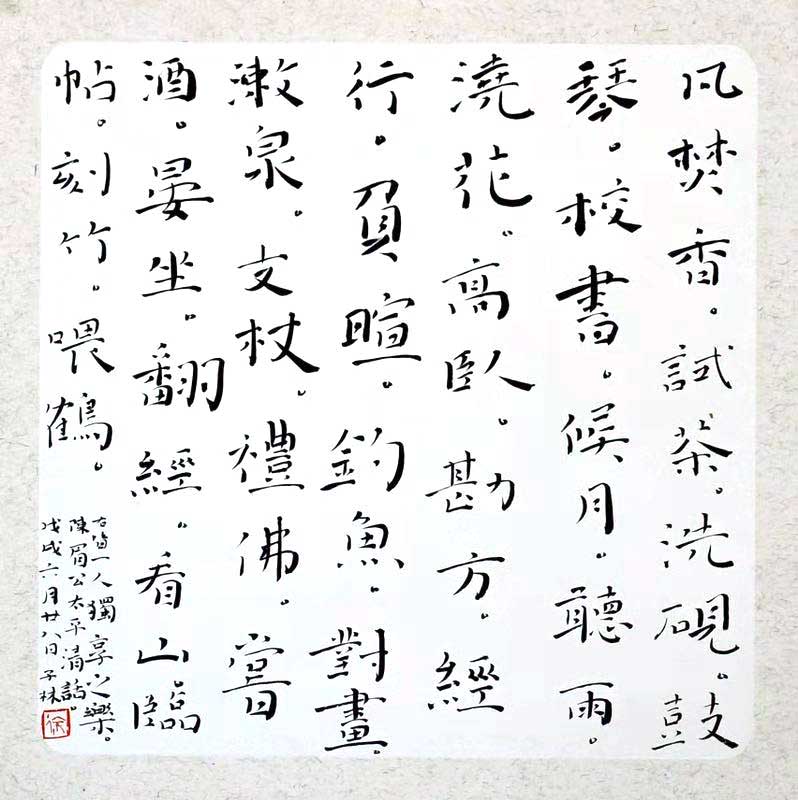 凡焚香。試茶。洗硯。鼓
琴。校書。候月。聽雨。
澆花。高臥。勘方。經
行。負暄。釣魚。對畫。
漱泉。支杖。禮佛。嘗
酒。晏坐。翻經。看山。臨
帖。刻竹。喂鶴。
右皆一人獨享之樂。
陳眉公太平清話。
戊戌六月廿八日子林
徐